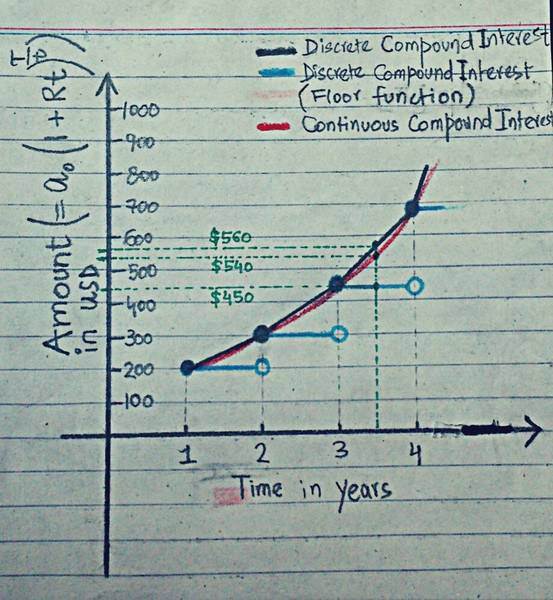 Discrete Compound Interest
Discrete Compound Interest
(Floor function)
Continuous Compound Interest
Amount (= a₀ (1 + Rt)^T/t)
in USD
1000
900
800
700
600
500
400
300
200
100
$560
$540
$450
1 2 3 4
Time in years